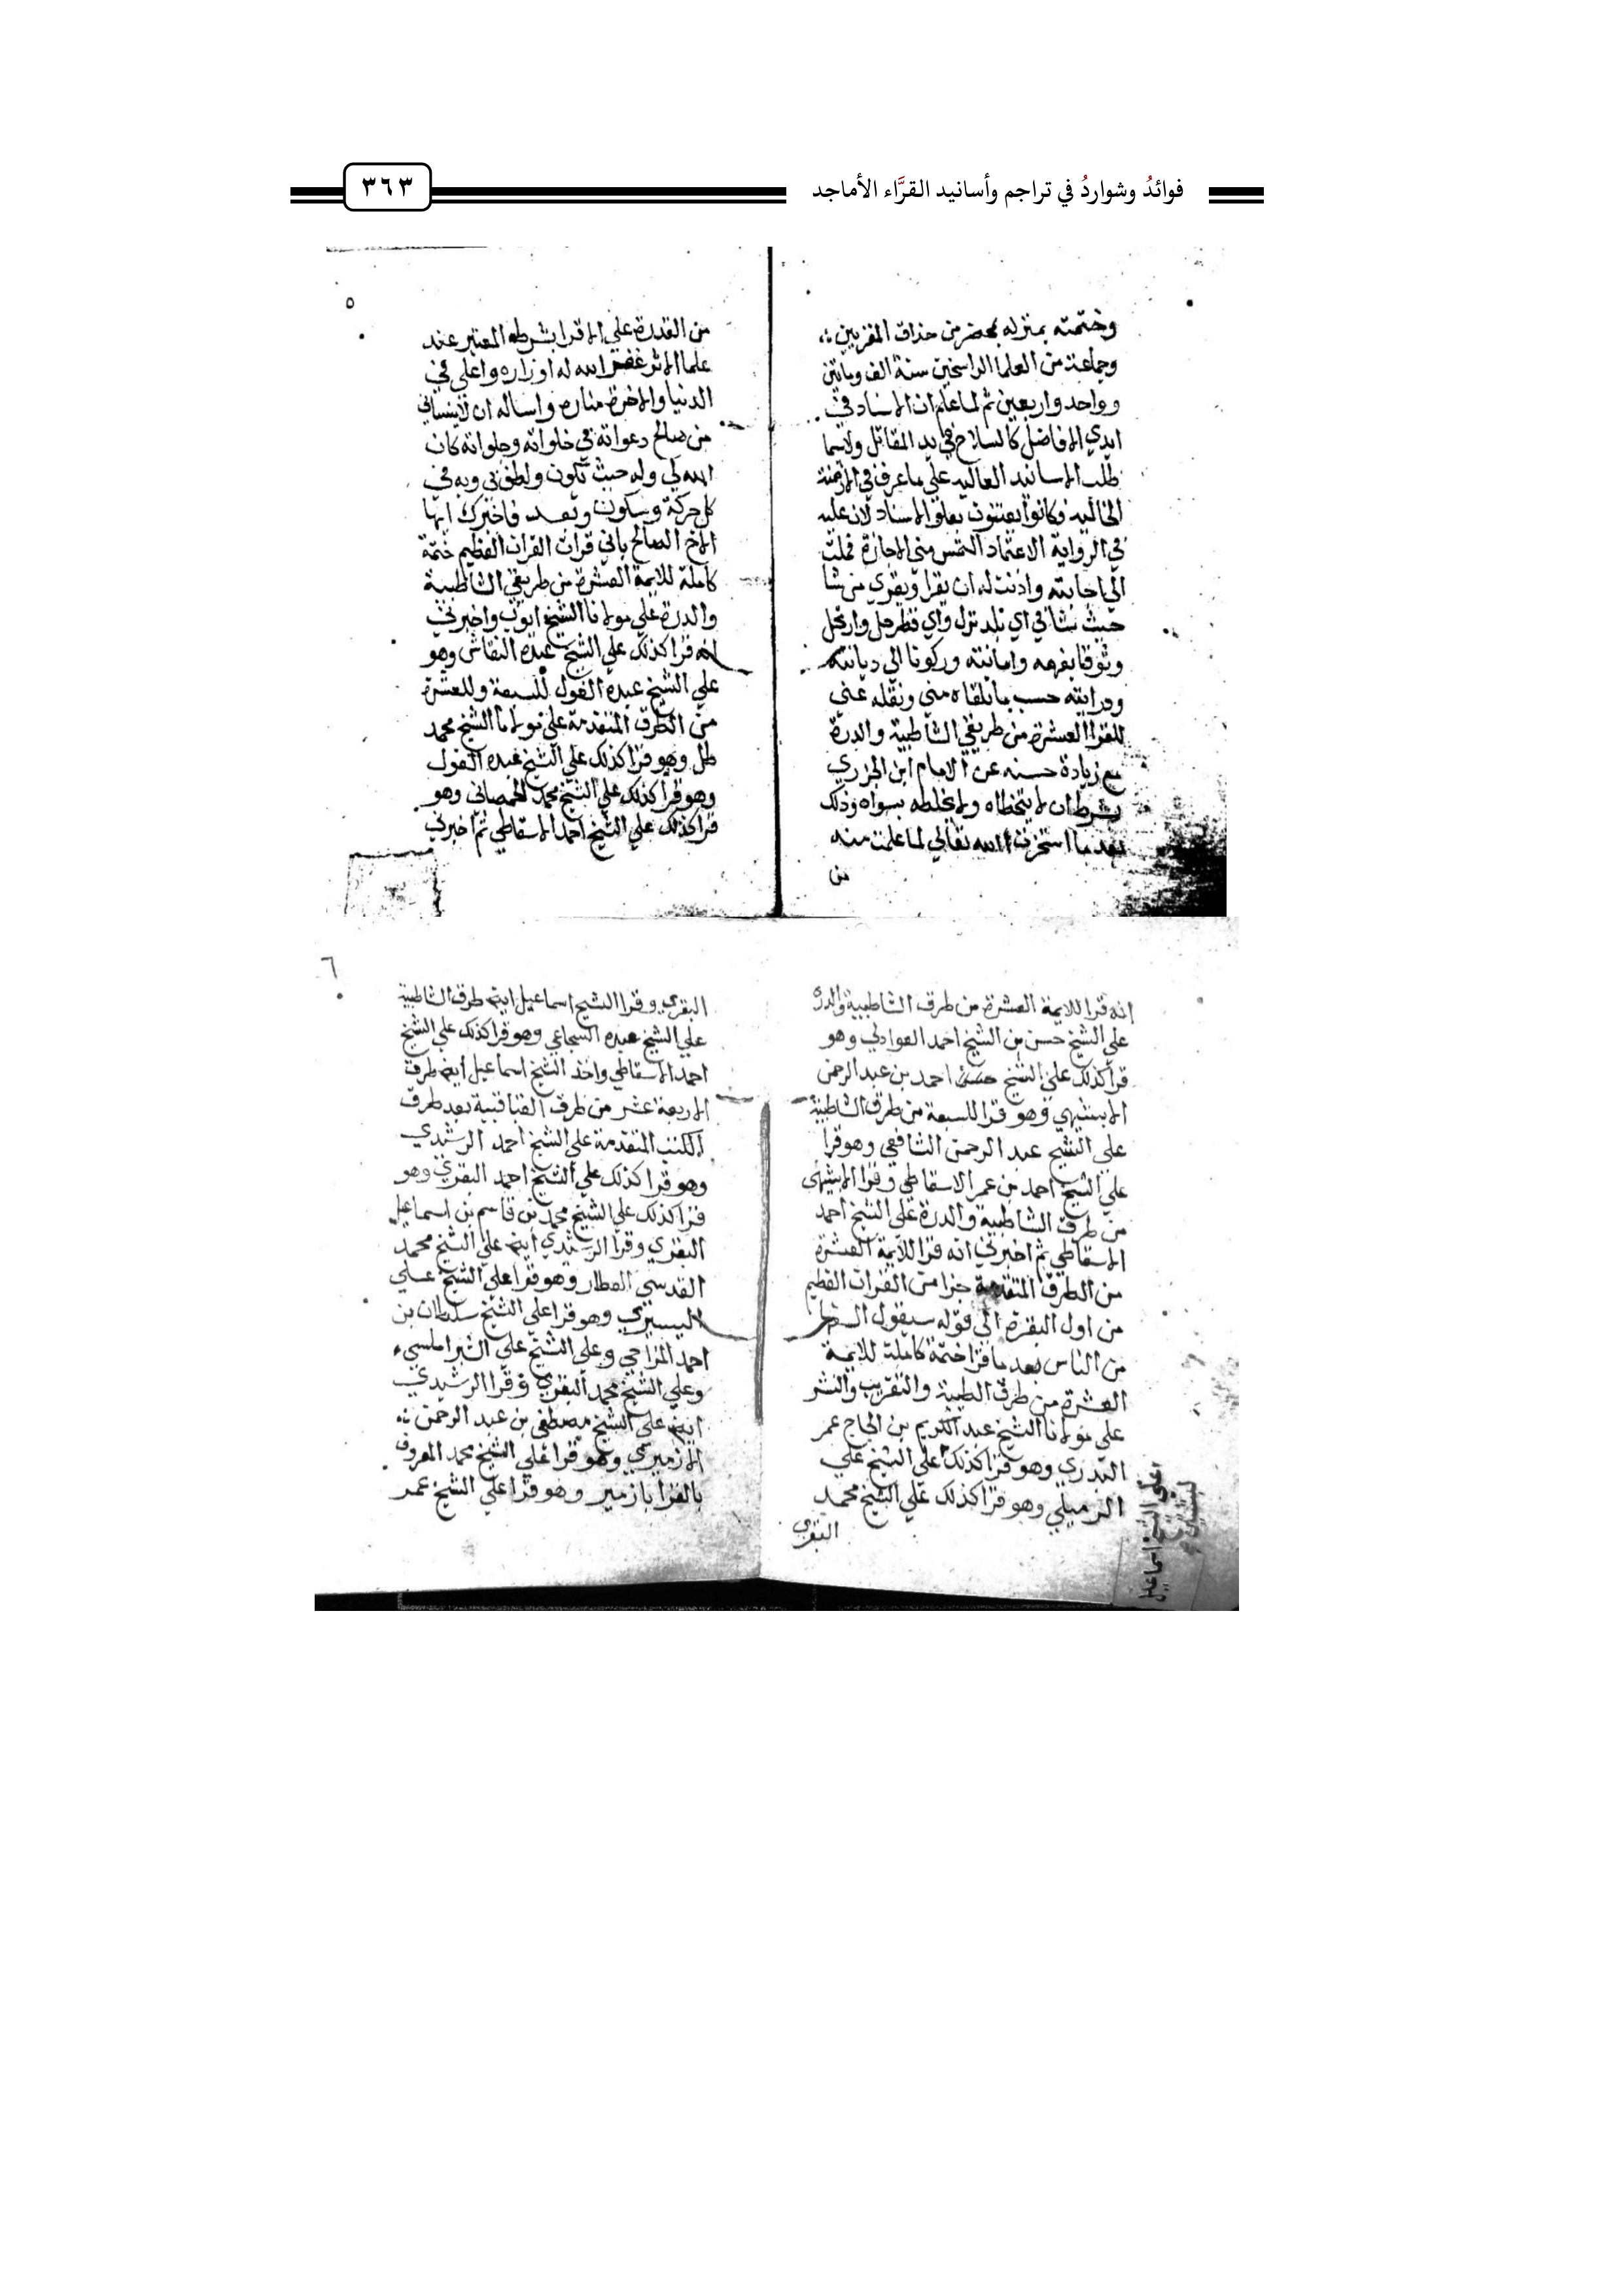 فوائدُ وشواردُ في تراجم وأسانيد القرَّاء الأماجد
٣٦٣
وختمته بمنزله بمحضر من حذاق المقريين
وجماعة من العلما الراسخين سنة الف وماتين
وواحد واربعين ثم لما علم ان الاسناد في
ايدي الافاضل كالسلاح في يد المقاتل ولاسيما
طلب الاسانيد العاليه علي ما عرف في الازمنة
الخاليه فكانوا يعتنون بعلو الاسناد لان عليه
في الرواية الاعتماد التمس مني الاجازة فملت
الي اجابته واذنت له ان يقرا ويقري من شا
حيث شا في اي بلد نزل واي قطر حل وارتحل
وثوقا بفهمه وامانته وركونا الي ديانته
ودرايته حسب ما تلقاه مني ونقله عني
للقرا العشرة من طريقي الشاطبية والدرة
مع زيادة حسنه عن الامام ابن الجزري
بشرط ان لا يتخطاه ولا يخلطه بسواه وذلك
بعد ما استخرت الله تعالي لما علمت منه
من
٥
من القدرة علي الاقرا بشرطه المعتبر عند
علما الاثر غفر الله له اوزاره واعلي في
الدنيا والاخرة مناره واساله ان لا ينساني
من صالح دعواته في خلواته وجلواته كان
الله لي وله حيث نكون ولطف بي وبه في
كل حركة وسكون وبعد فاخبرك ايها
الاخ الصالح باني قرات القران العظيم ختمة
كاملة للايمة العشرة من طريقي الشاطبية
والدرة علي مولانا الشيخ ايوب واخبرني
انه قرا كذلك علي الشيخ عبده النقاش وهو
علي الشيخ عبده الفول للسبعة وللعشرة
من الطرق المتقدمة علي مولانا الشيخ محمد
طل وهو قرا كذلك علي الشيخ عبده الفول
وهو قرا كذلك علي الشيخ محمد الحمصاني وهو
قرا كذلك علي الشيخ احمد الاسقاطي ثم اخبرني
انه قرا للايمة العشرة من طرق الشاطبية والدرة
علي الشيخ حسن بن الشيخ احمد العوادلي وهو
قرا كذلك علي الشيخ احمد بن عبد الرحمن
الابشيهي وهو قرا للسبعة من طرق الشاطبية
علي الشيخ عبد الرحمن الشافعي وهو قرا
علي الشيخ احمد بن عمر الاسقاطي وقرا الابشيهي
من طرق الشاطبية والدرة علي الشيخ احمد
الاسقاطي ثم اخبرني انه قرا للايمة العشرة
من الطرق المتقدمة جزا من القران العظيم
من اول البقرة الي قوله سيقول السفها
من الناس بعد ما قرا ختمة كاملة للايمة
العشرة من طرق الطيبة والتقريب والنشر
علي مولانا الشيخ عبد الكريم بن الحاج عمر
البدري وهو قرا كذلك علي الشيخ علي
الرميلي وهو قرا كذلك علي الشيخ محمد
البقري
علي الشيخ اسماعيل
٦
البقري وقرا الشيخ اسماعيل ايضا طرق الشاطبية
علي الشيخ عبده السجاعي وهو قرا كذلك علي الشيخ
احمد الاسقاطي واخذ الشيخ اسماعيل ايضا طرق
الاربعة عشر من طرق القباقبية بعد طرق
الكتب المتقدمة علي الشيخ احمد الرشيدي
وهو قرا كذلك علي الشيخ احمد البقري وهو
قرا كذلك علي الشيخ محمد بن قاسم بن اسماعيل
البقري وقرا الرشيدي ايضا علي الشيخ محمد
القدسي العطار وهو قرا علي الشيخ علي
اليستيري وهو قرا علي الشيخ سلطان بن
احمد المزاحي وعلي الشيخ علي الشبراملسي
وعلي الشيخ محمد البقري وقرا الرشيدي
ايضا علي الشيخ مصطفي بن عبد الرحمن
الازميري وهو قرا علي الشيخ محمد المعروف
بالقرا بازمير وهو قرا علي الشيخ عمر